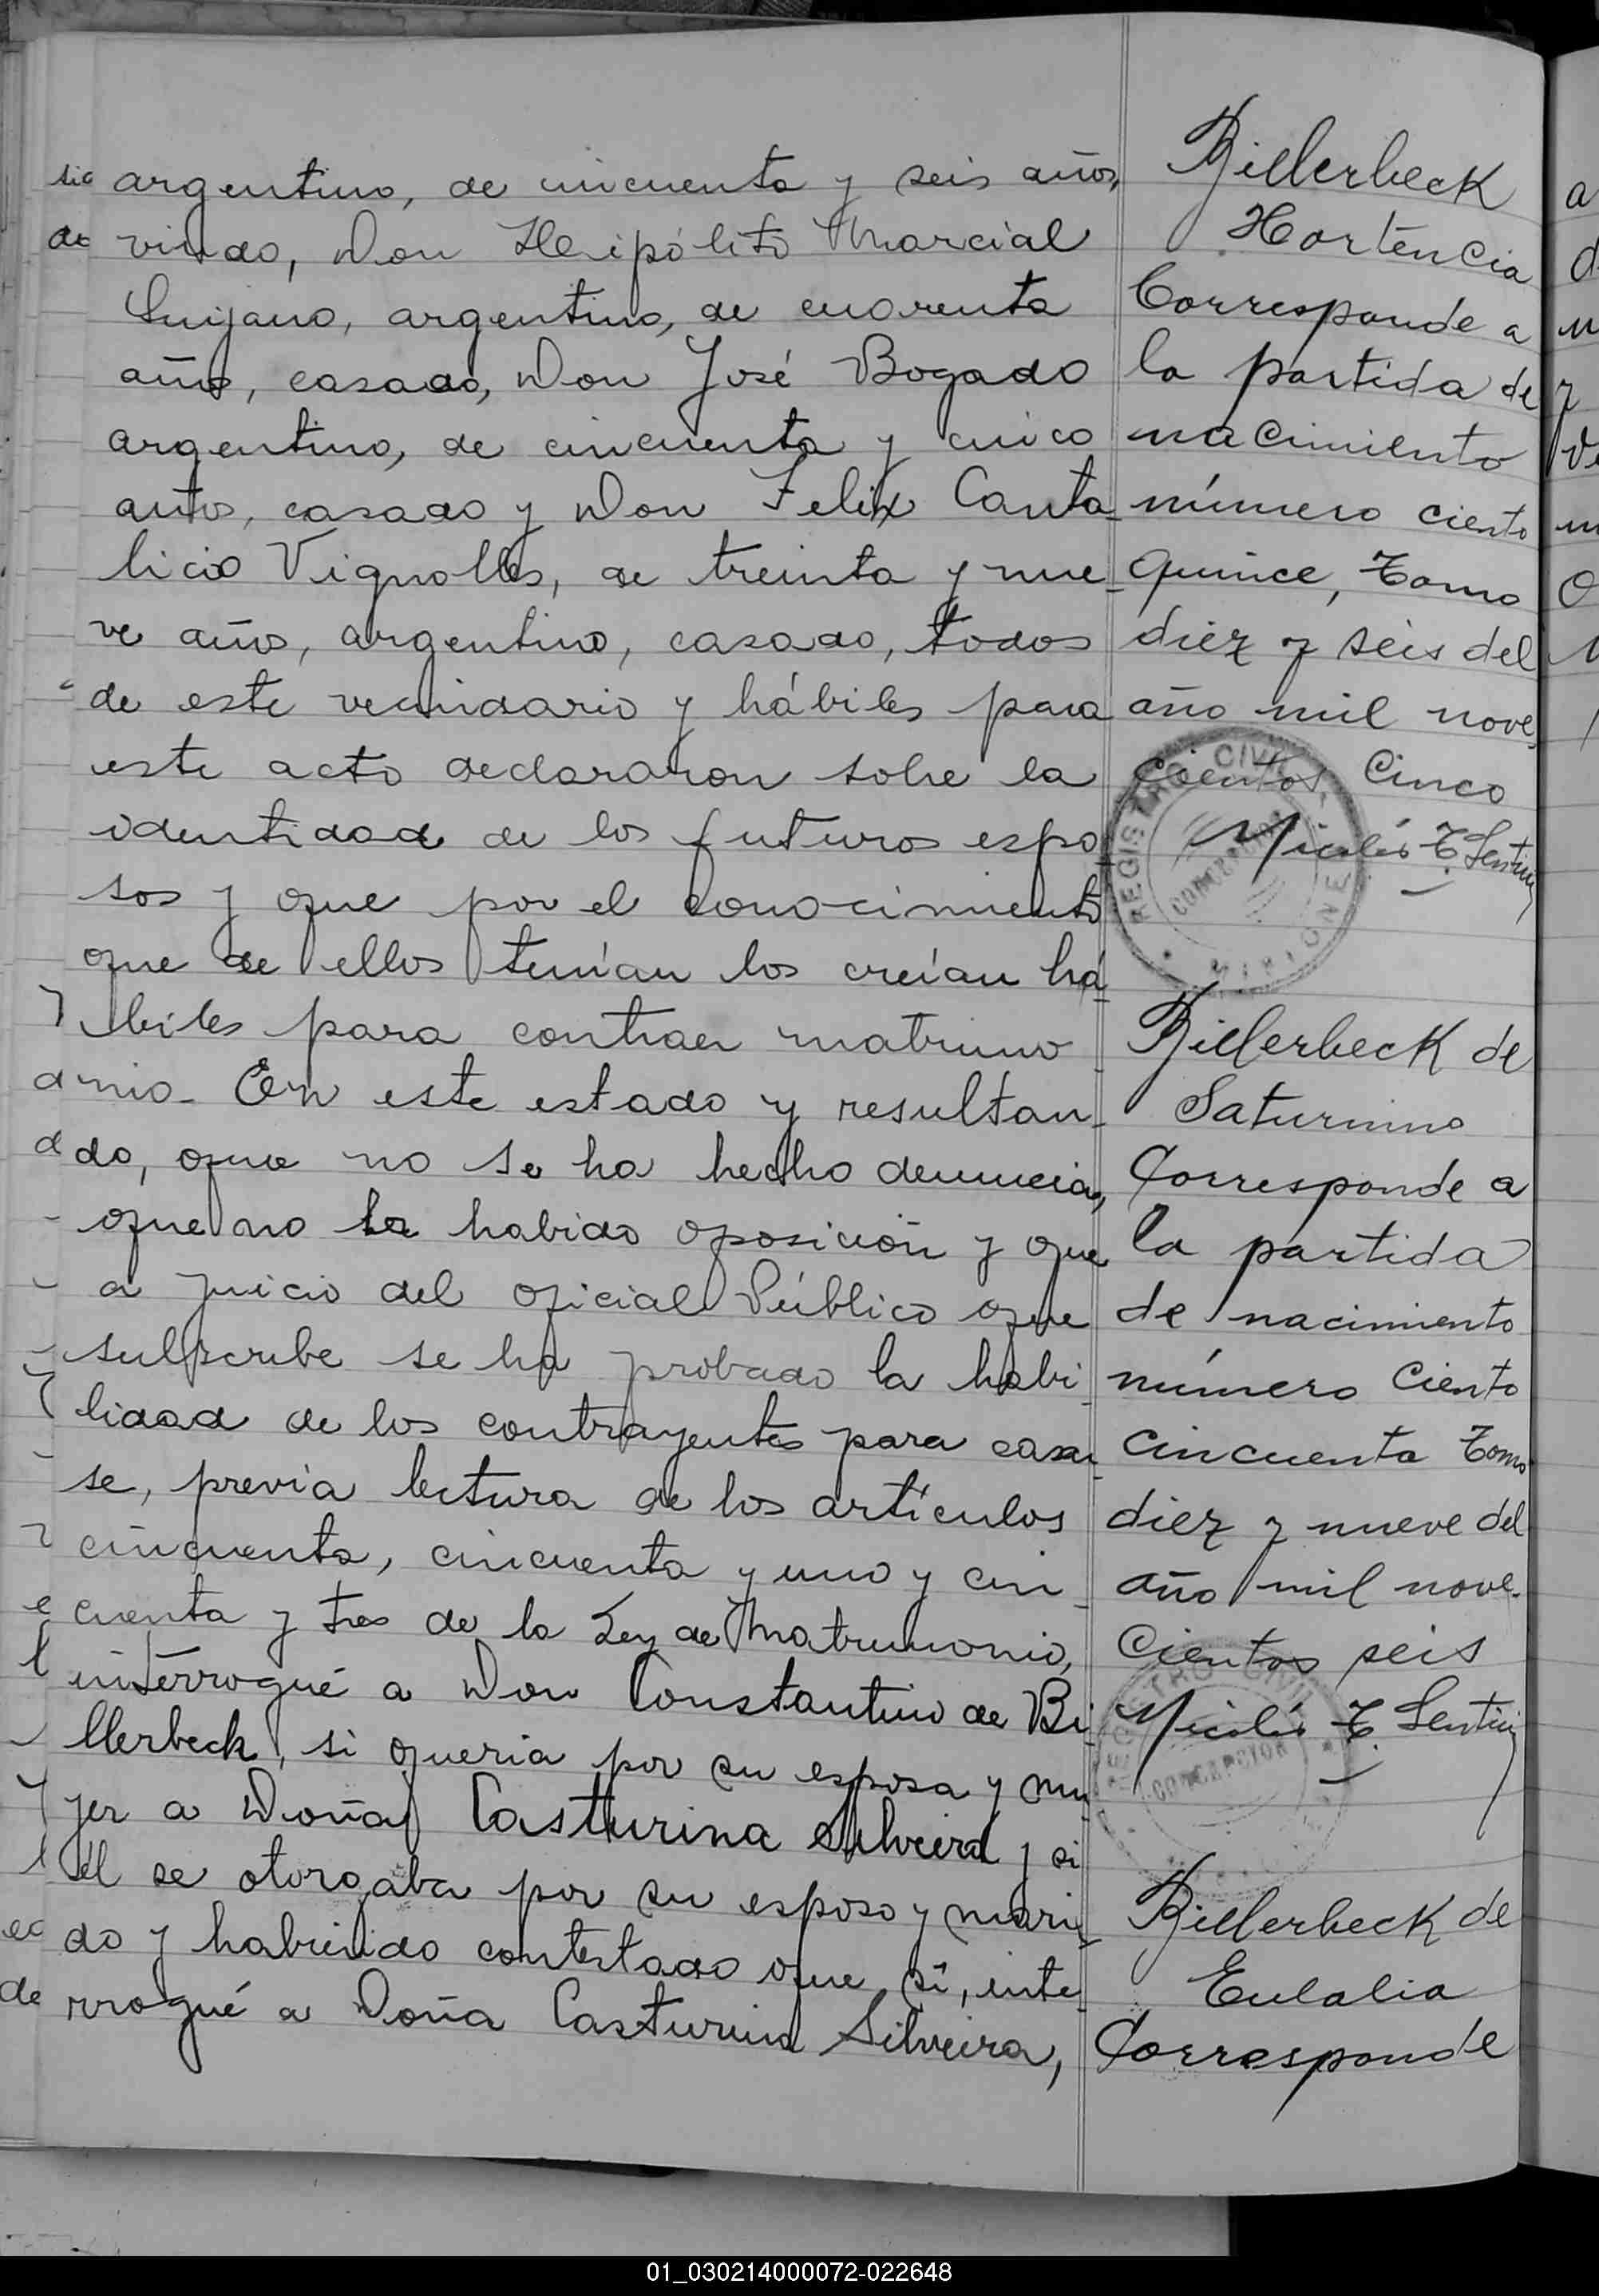 argentino, de cincuenta y seis años,
viudo, Don Hipólito Marcial
Quijano, argentino, de cuarenta
años, casado, Don José Bogado
argentino, de cincuenta y cinco
años, casado y Don Felix Canta-
licio Vignolles, de treinta y nue-
ve años, argentino, casado, todos
de este vecindario y hábiles para
este acto declararon sobre la
identidad de los futuros espo-
sos y que por el conocimiento
que de ellos tenían los creían há-
biles para contraer matrimo-
nio. En este estado y resultan-
do, que no se ha hecho denuncia,
que no ha habido oposición y que
a juicio del oficial Público que
subscribe se ha probado la habi-
lidad de los contrayentes para casar-
se, previa lectura de los artículos
cincuenta, cincuenta y uno y cin-
cuenta y tres de la Ley de Matrimonio,
interrogué a Don Constantino de Bi-
llerbeck, si queria por su esposa y mu-
jer a Doña Casturina Silveira y si
él se otorgaba por su esposo y mari-
do y habiendo contestado que sí, inte-
rrogué a Doña Casturina Silveira,
Billerbeck
Hortencia
Corresponde a
la partida de
nacimiento
número ciento
quince, Tomo
diez y seis del
año mil nove-
cientos cinco
Nicolás T.
REGISTRO CIVIL
CONCEPCION
MISIONES
Billerbeck de
Saturnino
Corresponde a
la partida
de nacimiento
número ciento
cincuenta Tomo
diez y nueve del
año mil nove-
cientos seis
Nicolás T.
REGISTRO CIVIL
CONCEPCION
Billerbeck de
Eulalia
Corresponde
01_030214000072-022648